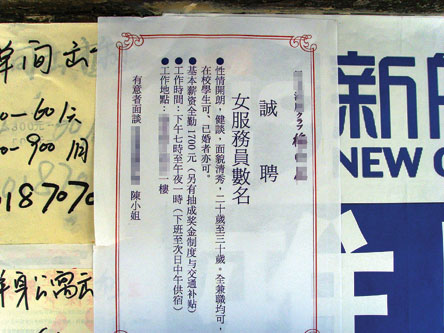 单间出
0-60/天
0-900
187070
单身公寓出
クラブ
誠聘
女服務員數名
●性情開朗，健談，面貌清秀，二十歲至三十歲。全兼職均可，
在校學生可、已婚者亦可。
●基本薪资全勤1700元（另有抽成奖金制度与交通补贴）
●工作時間：下午七時至午夜一時（下班至次日中午供宿）
●工作地點： 一樓
有意者面談 陳小姐
新
NEW